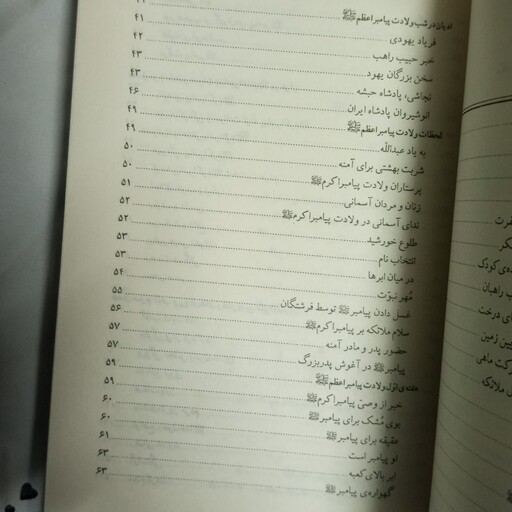 ادیان در شب ولادت پیامبر اعظم ﷺ
فریاد یهودی ۴۱
خبر حبیب راهب ۴۲
سخن بزرگان یهود ۴۳
نجاشی، پادشاه حبشه ۴۳
انوشیروان پادشاه ایران ۴۶
لحظات ولادت پیامبر اعظم ﷺ ۴۹
به یاد عبدالله ۴۹
شربت بهشتی برای آمنه ۵۰
پرستاران ولادت پیامبر اکرم ﷺ ۵۰
زنان و مردان آسمانی ۵۱
ندای آسمانی در ولادت پیامبر اکرم ﷺ ۵۲
طلوع خورشید ۵۲
انتخاب نام ۵۳
در میان ابرها ۵۳
مُهر نبوّت ۵۴
غسل دادن پیامبر ﷺ توسط فرشتگان ۵۵
سلام ملائکه بر پیامبر اکرم ﷺ ۵۶
حضور پدر و مادر آمنه ۵۷
پیامبر ﷺ در آغوش پدربزرگ ۵۷
هفته‌ی اوّل ولادت پیامبر اعظم ﷺ ۵۹
خبر از وصیّ پیامبر اکرم ﷺ ۵۹
بوی مُشک برای پیامبر ﷺ ۶۰
عقیقه برای پیامبر ﷺ ۶۰
او پیامبر است ۶۱
ابر بالای کعبه ۶۳
گهواره‌ی پیامبر ﷺ ۶۳
ه‌ی کودک
راهبان
ی درخت
زمین
ماهی
ملائکه